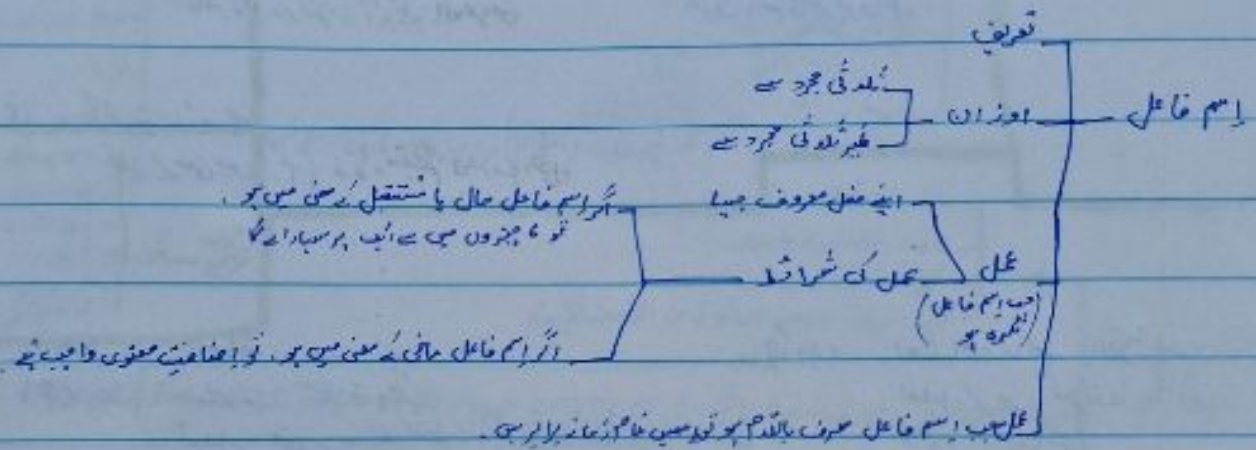 تعریف
اسم فاعل
اوزان
ثلاثی مجرد سے
غیر ثلاثی مجرد سے
عمل
(جب اسم فاعل
نکرہ ہو)
اپنے فعل معروف جیسا
عمل کی شرائط
اگر اسم فاعل حال یا مستقبل کے معنی میں ہو۔
تو ٦ چیزوں میں سے ایک پر سہارا لے گا
اگر اسم فاعل ماضی کے معنی میں ہو۔ تو اضافت معنوی واجب ہے۔
عمل جب اسم فاعل معرف باللام ہو تو اسمیں تمام زمانے برابر ہیں۔